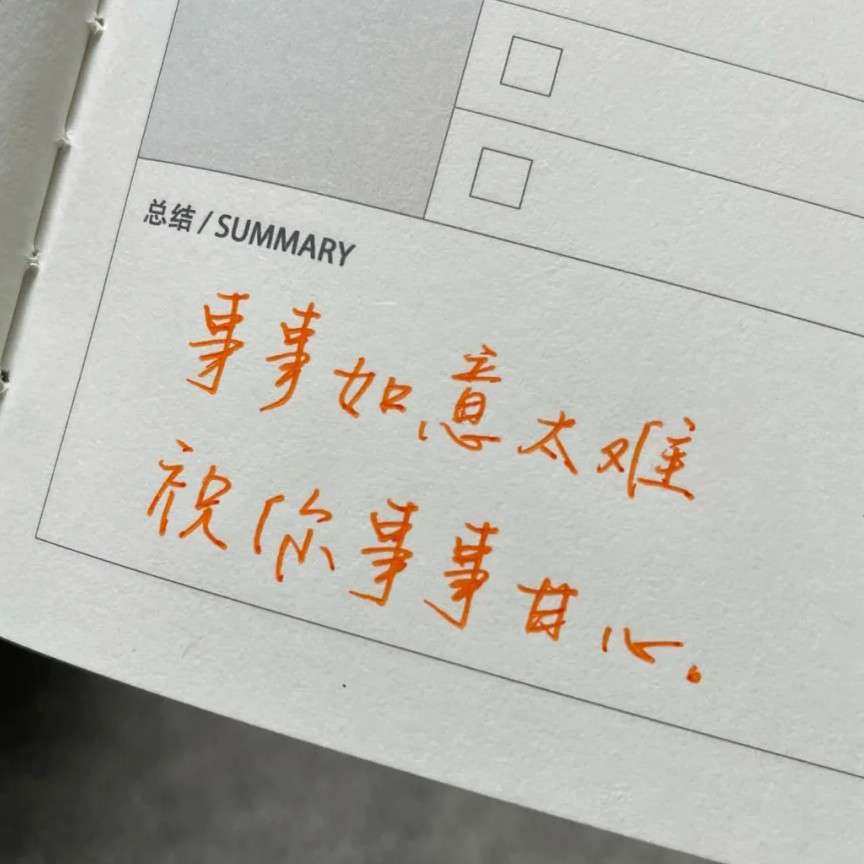 总结 / SUMMARY
事事如意太难
祝你事事甘心.